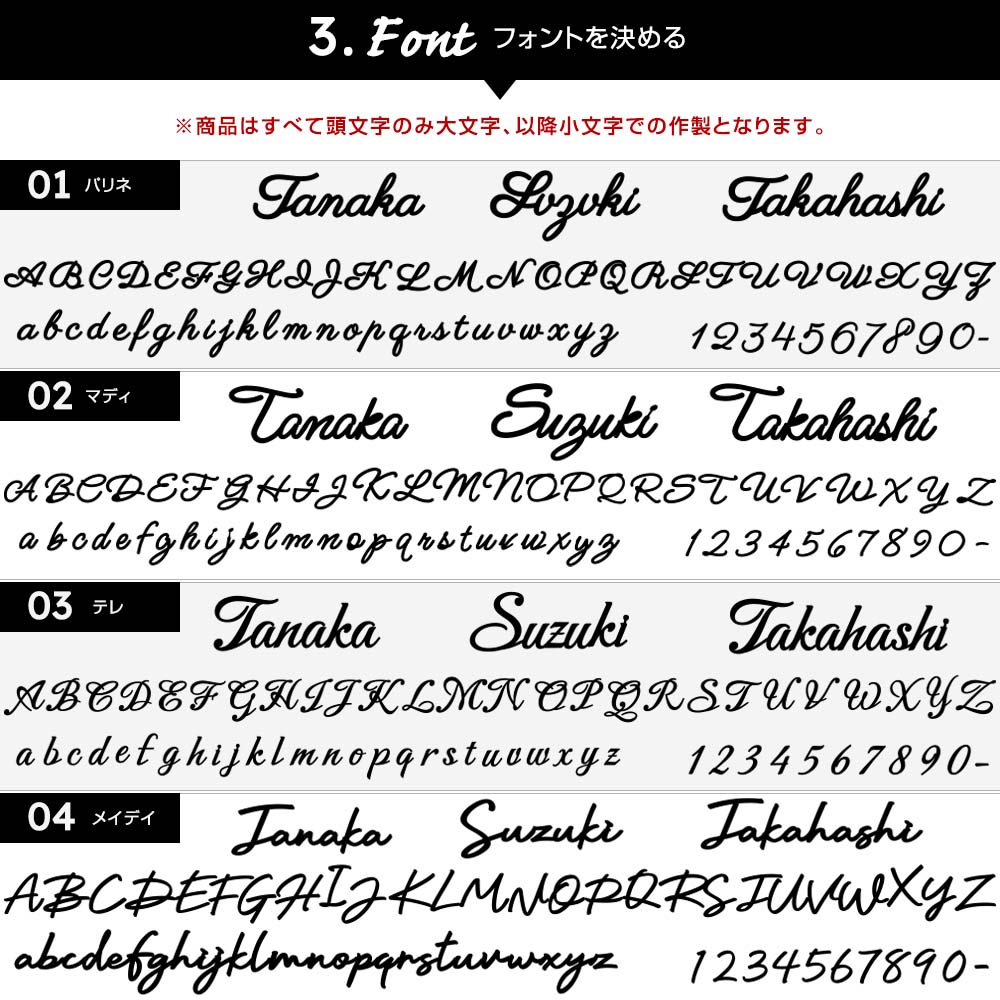 3. Font フォントを決める
※商品はすべて頭文字のみ大文字、以降小文字での作製となります。
01 バリネ
Tanaka Suzuki Takahashi
ABCDEFGHIJKLMNOPQRSTUVWXYZ
abcdefghijklmnopqrstuvwxyz 1234567890-
02 マディ
Tanaka Suzuki Takahashi
ABCDEFGHIJKLMNOPQRSTUVWXYZ
abcdefghijklmnopqrstuvwxyz 1234567890-
03 テレ
Tanaka Suzuki Takahashi
ABCDEFGHIJKLMNOPQRSTUVWXYZ
abcdefghijklmnopqrstuvwxyz 1234567890-
04 メイデイ
Tanaka Suzuki Takahashi
ABCDEFGHIJKLMNOPQRSTUVWXYZ
abcdefghijklmnopqrstuvwxyz 1234567890-